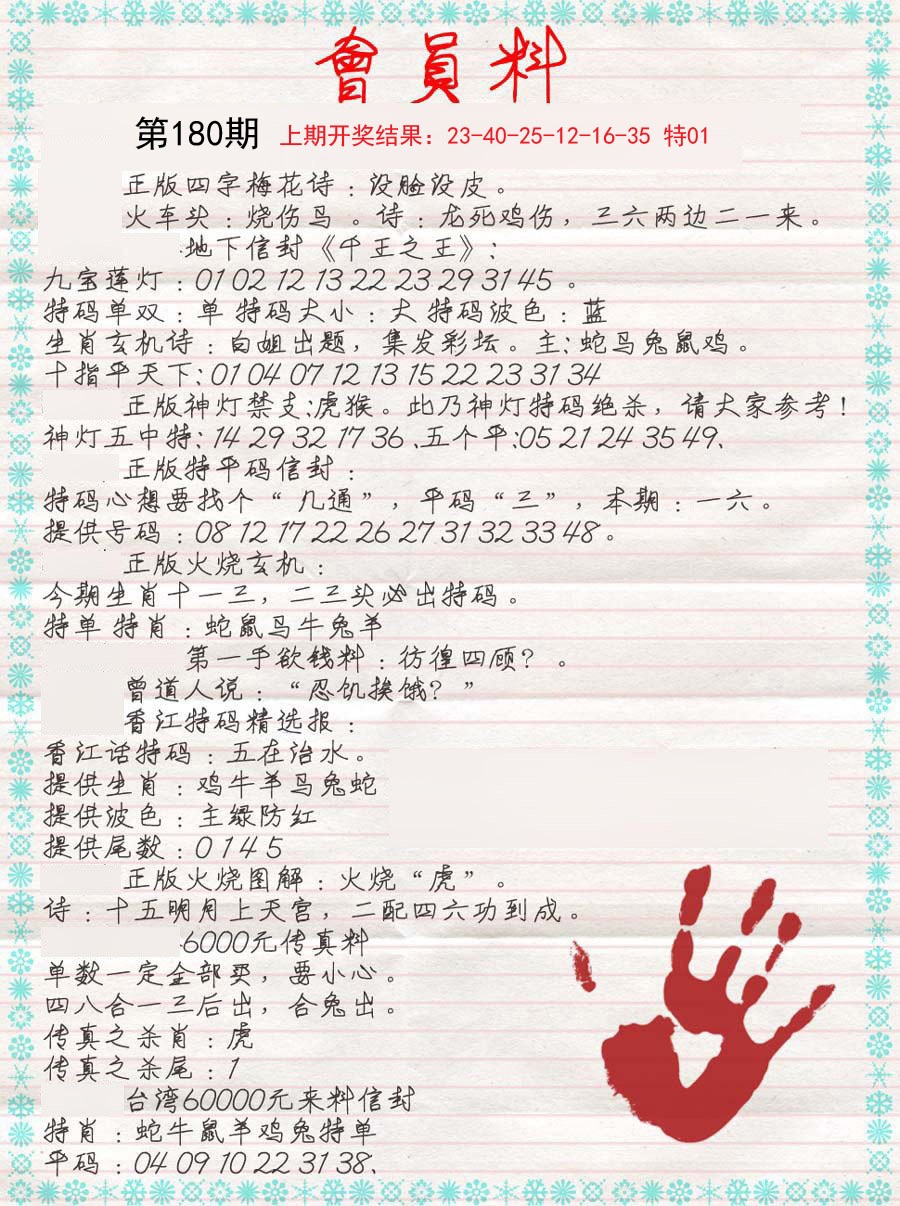 會員料
第180期 上期开奖结果：23-40-25-12-16-35 特01
正版四字梅花诗：没脸没皮。
火车头：烧伤鸟。诗：龙死鸡伤，三六两边二一来。
地下信封《千王之王》：
九宝莲灯：01 02 12 13 22 23 29 31 45 。
特码单双：单 特码大小：大 特码波色：蓝
生肖玄机诗：白姐出题，集发彩坛。主:蛇马兔鼠鸡。
十指平天下:01 04 07 12 13 15 22 23 31 34
正版神灯禁支:虎猴。此乃神灯特码绝杀，请大家参考！
神灯五中特: 14 29 32 17 36 .五个平:05 21 24 35 49、
正版特平码信封：
特码心想要找个“ 九通”，平码“三”，本期：一六。
提供号码：08 12 17 22 26 27 31 32 33 48。
正版火烧玄机：
今期生肖十一三，二三头必出特码。
特单 特肖：蛇鼠马牛兔羊
第一手欲钱料：彷徨四顾？。
曾道人说：“忍饥挨饿？”
香江特码精选报：
香江话特码：五在治水。
提供生肖：鸡牛羊马兔蛇
提供波色：主绿防红
提供尾数：0 1 4 5
正版火烧图解：火烧“虎”。
诗：十五明月上天宫，二配四六功到成。
6000元传真料
单数一定全部买，要小心。
四八合一三后出，合兔出。
传真之杀肖：虎
传真之杀尾：1
台湾60000元来料信封
特肖：蛇牛鼠羊鸡兔特单
平码：04 09 10 22 31 38、